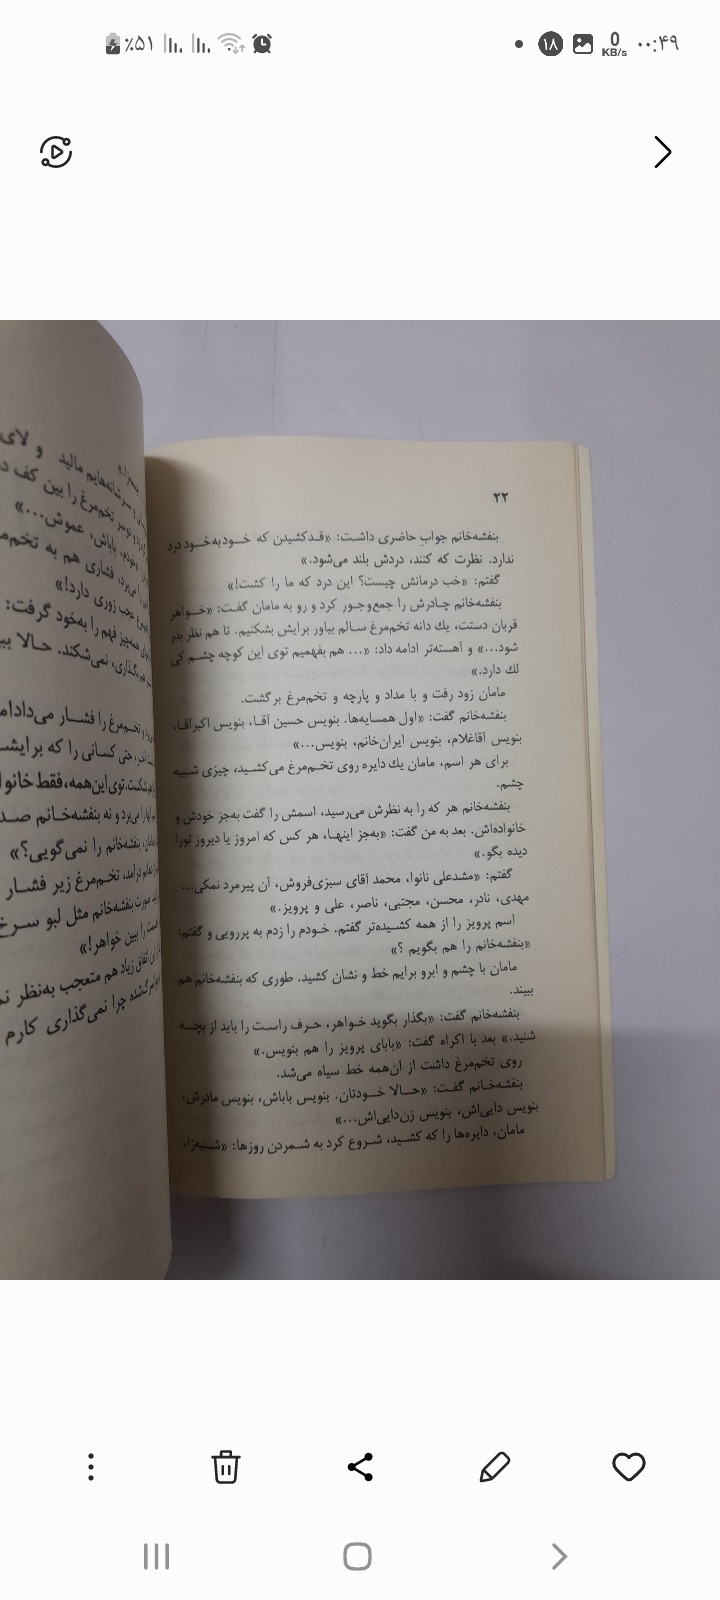 ٪۵۱
۱۸
0
KB/s
۰۰:۴۹
۲۲
بنفشه‌خانم جواب حاضری داشت: «قدکشیدن که خودبه‌خود درد
ندارد. نظرت که کنند، دردش بلند می‌شود.»
گفتم: «خب درمانش چیست؟ این درد که ما را کشت!»
بنفشه‌خانم چادرش را جمع‌وجور کرد و رو به مامان گفت: «خواهر
قربان دستت، یك دانه تخم‌مرغ سالم بیاور برایش بشکنیم. تا هم نظر بدر
شود...» و آهسته‌تر ادامه داد: «... هم بفهمیم توی این کوچه چشم کی
لك دارد.»
مامان زود رفت و با مداد و پارچه و تخم‌مرغ برگشت.
بنفشه‌خانم گفت: «اول همسایه‌ها. بنویس حسین آقا، بنویس اکبرآقا،
بنویس آقاغلام، بنویس ایران‌خانم، بنویس...»
برای هر اسم، مامان یك دایره روی تخم‌مرغ می‌کشید، چیزی شبیه
چشم.
بنفشه‌خانم هر که را به نظرش می‌رسید، اسمش را گفت به‌جز خودش و
خانواده‌اش. بعد به من گفت: «به‌جز اینها، هر کس که امروز یا دیروز تورا
دیده بگو.»
گفتم: «مشدعلی نانوا، محمد آقای سبزی‌فروش، آن پیرمرد نمکی...
مهدی، نادر، محسن، مجتبی، ناصر، علی و پرویز.»
اسم پرویز را از همه کشیده‌تر گفتم. خودم را زدم به پررویی و گفتم:
«بنفشه‌خانم را هم بگویم ؟»
مامان با چشم و ابرو برایم خط و نشان کشید. طوری که بنفشه‌خانم هم
ببیند.
بنفشه‌خانم گفت: «بگذار بگوید خواهر، حرف راست را باید از بچه
شنید.» بعد با اکراه گفت: «بابای پرویز را هم بنویس.»
روی تخم‌مرغ داشت از آن‌همه خط سیاه می‌شد.
بنفشه‌خانم گفت: «حالا خودتان. بنویس باباش، بنویس مادرش،
بنویس دایی‌اش، بنویس زن‌دایی‌اش...»
مامان، دایره‌ها را که کشید، شروع کرد به شمردن روزها: «شنبه‌زا،
شانه‌هایم مالید و لای
تخم‌مرغ را بین کف
باباش، عموش...»
فشاری هم به
عجب زوری دارد!»
همه‌چیز فهم را به‌خود گرفت:
نمی‌شکند. حالا
تخم‌مرغ را فشار می‌داد
حتی کسانی را که
توی این‌همه، فقط
و نه بنفشه‌خانم
بنفشه‌خانم را نمی‌گویی؟»
تخم‌مرغ زیر فشار
صورت بنفشه‌خانم مثل لبو سرخ
را ببین خواهر!»
اتفاق زیاد هم متعجب به‌نظر
چرا نمی‌گذاری کارم